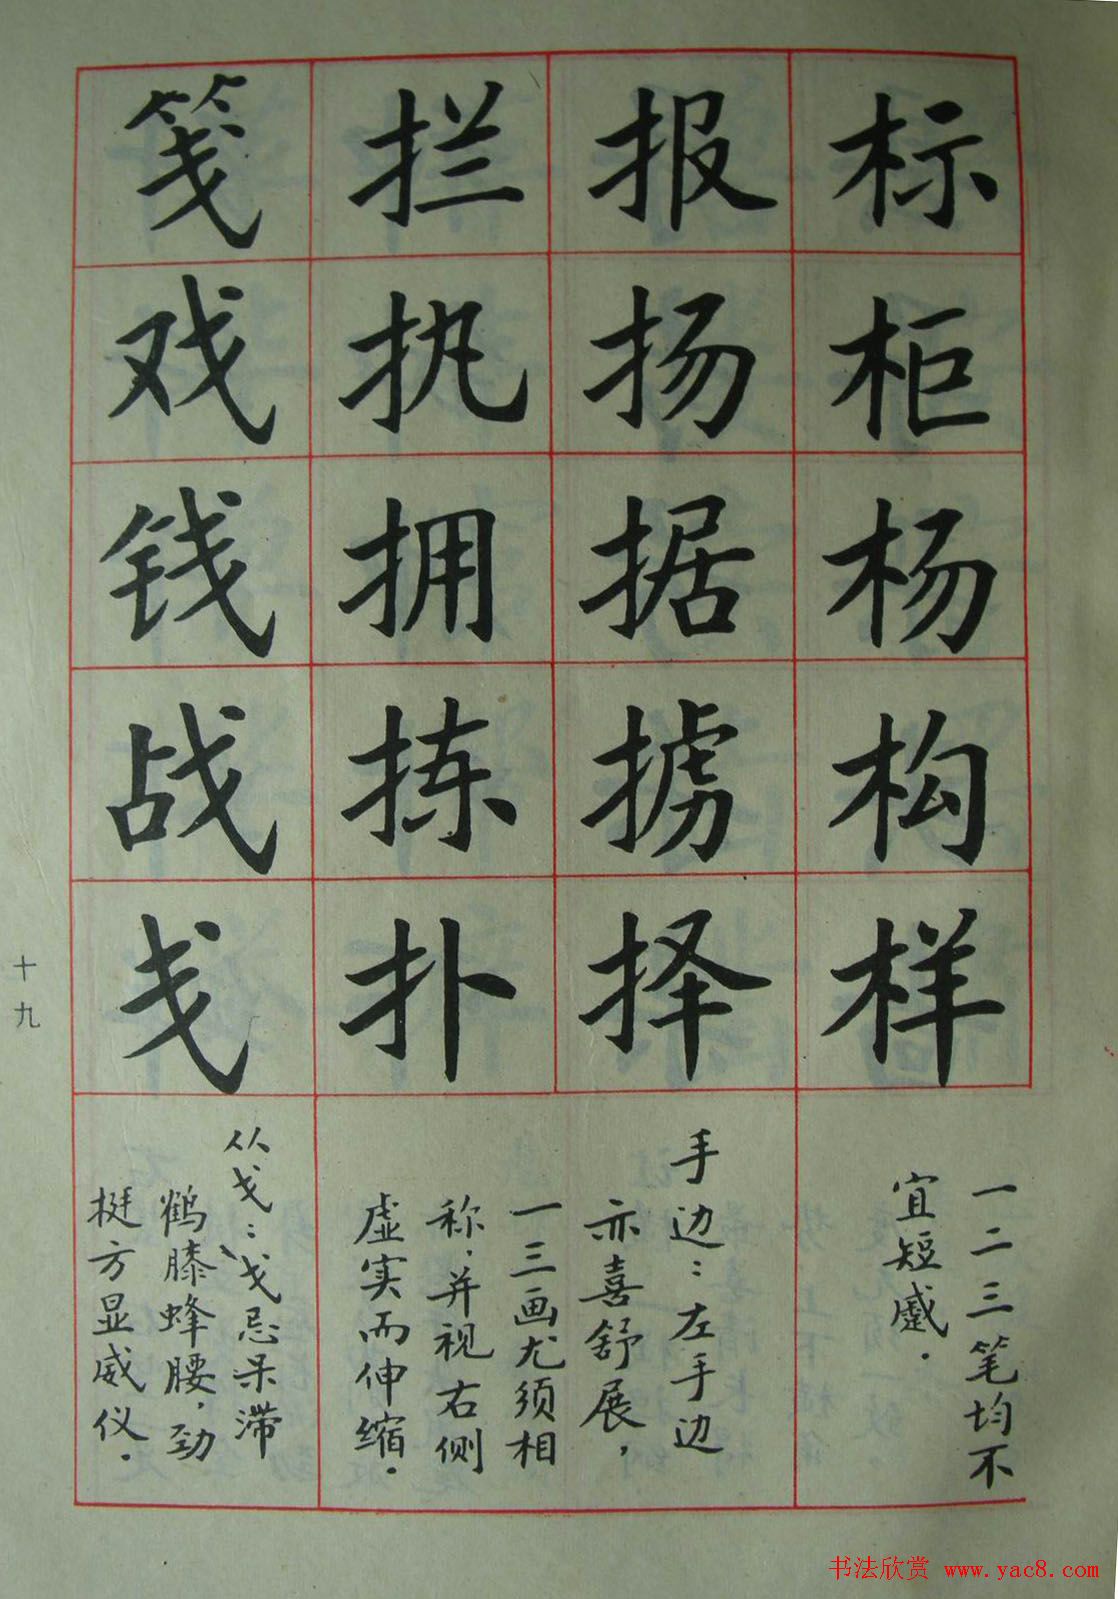 标柜杨构样
一二三笔均不
宜短蹙。
报扬据掳择
拦执拥拣扑
手边：左手边
亦喜舒展，
一三画尤须相
称，并视右侧
虚实而伸缩。
笺戏钱战戋
从戈：戈忌呆滞
鹤膝蜂腰，劲
挺方显威仪。
十九
书法欣赏 www.yac8.com